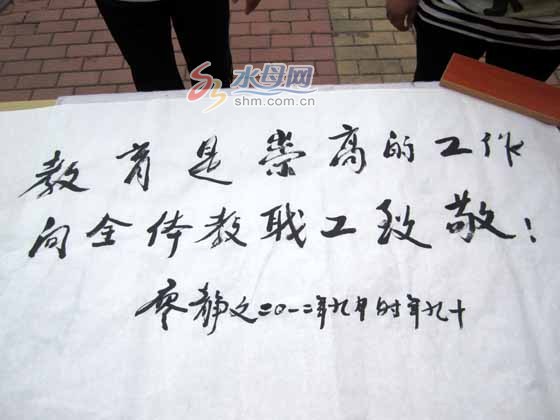 水母网
shm.com.cn
教育是崇高的工作
向全体教职工致敬！
廖静文二〇一二年九月时年九十